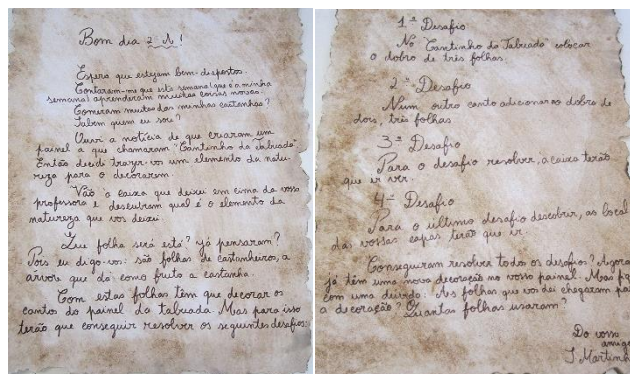 Bom dia 2º A!
Espero que estejam bem-dispostos.
Contaram-me que esta semana, que é a minha
semana, aprenderam muitas coisas novas.
Comeram muitas das minhas castanhas?
Sabem quem eu sou?
Ouvi a notícia de que criaram um
painel a que chamaram "Cantinho da tabuada".
Então decidi trazer-vos um elemento da natu-
reza para o decorarem.
Vão à caixa que deixei em cima da vossa
professora e descubram qual é o elemento da
natureza que vos deixei.
Que folha será esta? Já pensaram?
Pois eu digo-vos: são folhas de castanheiros, a
árvore que dá como fruto a castanha.
Com estas folhas têm que decorar os
cantos do painel da tabuada. Mas para isso
terão que conseguir resolver os seguintes desafios:
1º Desafio
No "Cantinho da Tabuada" colocar
o dobro de três folhas.
2º Desafio
Num outro canto adicionar ao dobro de
dois, três folhas.
3º Desafio
Para o desafio resolver, a caixa terão
que ir ver.
4º Desafio
Para o último desafio descobrir, ao local
das vossas capas terão que ir.
Conseguiram resolver todos os desafios? Agora
já têm uma nova decoração no vosso painel. Mas
com uma dúvida: As folhas que vos dei chegaram
a decoração? Quantas folhas usaram?
Do vosso
amigo
S. Martinho